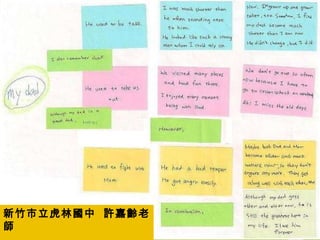 He used to be tall.
I was much shorter than
he when standing next
to him.
He looked like such a strong
man when I told rely on
Now, I've grown up and grown
taller, and sometimes, I find
my dad became much
shorter than I am now.
He didn't change, but I did
I also remember that
my dad
He used to take us
out.
We visited many places
and had fun there.
I enjoyed every moment
being with Dad.
We don't go out so often
now because I have to
go to cram school on
Oh! I miss the old days
Although my dad is a
However,
He used to fight with
Mom
He had a bad temper
He got angry easily.
Maybe both Dad and Mom
become older and much
mature, so they don't
argue any more. They get
along well with each other,
In conclusion,
Although my dad gets
older and older now, he is
still the greatest hero in
my life. I love him
forever
新竹市立虎林國中 許嘉齡老
師